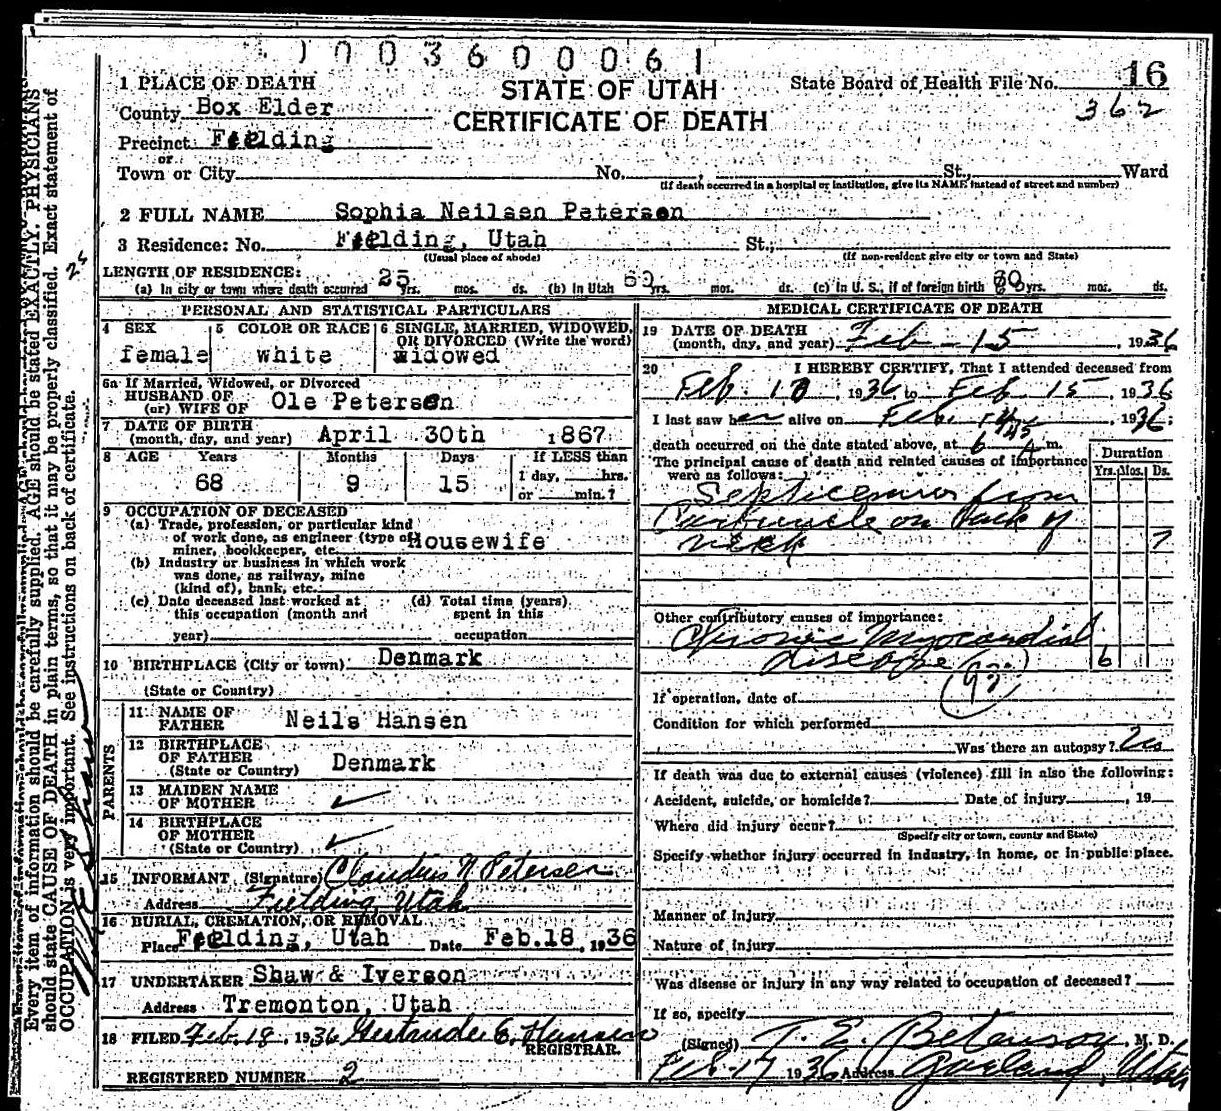 1003600061
1 PLACE OF DEATH
STATE OF UTAH
State Board of Health File No. 16
County Box Elder
CERTIFICATE OF DEATH
362
Precinct Fielding
or
Town or City No. St., Ward
(If death occurred in a hospital or institution, give its NAME instead of street and number)
2 FULL NAME Sophia Neilsen Petersen
3 Residence: No. Fielding, Utah St.,
(Usual place of abode) (If non-resident give city or town and State)
LENGTH OF RESIDENCE:
(a) In city or town where death occurred 25 yrs. mos. ds. (b) In Utah 60 yrs. mos. ds. (c) in U. S., if of foreign birth 60 yrs. mos. ds.
PERSONAL AND STATISTICAL PARTICULARS
4 SEX
female
5 COLOR OR RACE
white
6 SINGLE, MARRIED, WIDOWED,
OR DIVORCED (Write the word)
widowed
6a If Married, Widowed, or Divorced
HUSBAND OF
(or) WIFE OF Ole Petersen
7 DATE OF BIRTH
(month, day, and year) April 30th 1867
8 AGE Years Months Days If LESS than
68 9 15 1 day, hrs.
or min.?
9 OCCUPATION OF DECEASED
(a) Trade, profession, or particular kind
of work done, as engineer (type of) Housewife
miner, bookkeeper, etc.
(b) Industry or business in which work
was done, as railway, mine
(kind of), bank, etc.
(c) Date deceased last worked at
this occupation (month and
year)
(d) Total time (years)
spent in this
occupation
10 BIRTHPLACE (City or town) Denmark
(State or Country)
PARENTS
11 NAME OF
FATHER Neils Hansen
12 BIRTHPLACE
OF FATHER
(State or Country) Denmark
13 MAIDEN NAME
OF MOTHER
14 BIRTHPLACE
OF MOTHER
(State or Country)
15 INFORMANT (Signature) Claudius N Petersen
Address Fielding Utah
16 BURIAL, CREMATION, OR REMOVAL
Place Fielding, Utah Date Feb.18, 1936
17 UNDERTAKER Shaw & Iverson
Address Tremonton, Utah
18 FILED Feb. 18, 1936 Gertrude E. Hansen
REGISTRAR.
REGISTERED NUMBER 2
MEDICAL CERTIFICATE OF DEATH
19 DATE OF DEATH
(month, day, and year) Feb - 15, 1936
20 I HEREBY CERTIFY, That I attended deceased from
Feb. 10, 1936 to Feb 15, 1936
I last saw her alive on Feb. 1936;
death occurred on the date stated above, at 6 A m.
The principal cause of death and related causes of importance
were as follows:
Duration
Yrs. Mos. Ds.
Septicemia from
Carbuncle on back of
neck 7
Other contributory causes of importance:
Chronic Myocardial
disease 6
If operation, date of
Condition for which performed
Was there an autopsy? No
If death was due to external causes (violence) fill in also the following:
Accident, suicide, or homicide? Date of injury , 19
Where did injury occur?
(Specify city or town, county and State)
Specify whether injury occurred in industry, in home, or in public place.
Manner of Injury
Nature of Injury
Was disease or injury in any way related to occupation of deceased?
If so, specify
(Signed) T. E. Betenson, M. D.
Feb-17 1936 Address Garland, Utah
Every item of information should be carefully supplied. AGE should be stated EXACTLY. PHYSICIANS
should state CAUSE OF DEATH in plain terms, so that it may be properly classified. Exact statement of
OCCUPATION is very important. See instructions on back of certificate.